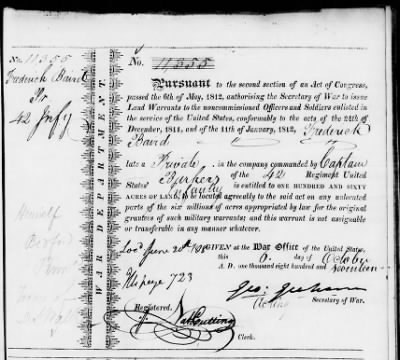 No. 11355
Frederick Baird
Pr
42 Infy
WAR DEPARTMENT
No. 11355
Pursuant to the second section of an Act of Congress,
passed the 6th of May, 1812, authorising the Secretary of War to issue
Land Warrants to the noncommissioned Officers and Soldiers enlisted in
the service of the United States, conformably to the acts of the 24th of
December, 1811, and of the 11th of January, 1812, Frederick
Baird
late a Private in the company commanded by Captain
Barkers of the 42 Regiment United
States' Infantry is entitled to ONE HUNDRED AND SIXTY
ACRES OF LAND, to be located agreeably to the said act on any unlocated
parts of the six millions of acres appropriated by law for the original
grantees of such military warrants; and this warrant is not assignable
or transferable in any manner whatever.
GIVEN at the War Office of the United States,
this 6. day of October
A. D. one thousand eight hundred and seventeen
page 723
Geo: Graham
Acting Secretary of War.
Registered.
Nat Cutting
Clerk.
Himself
Bedford